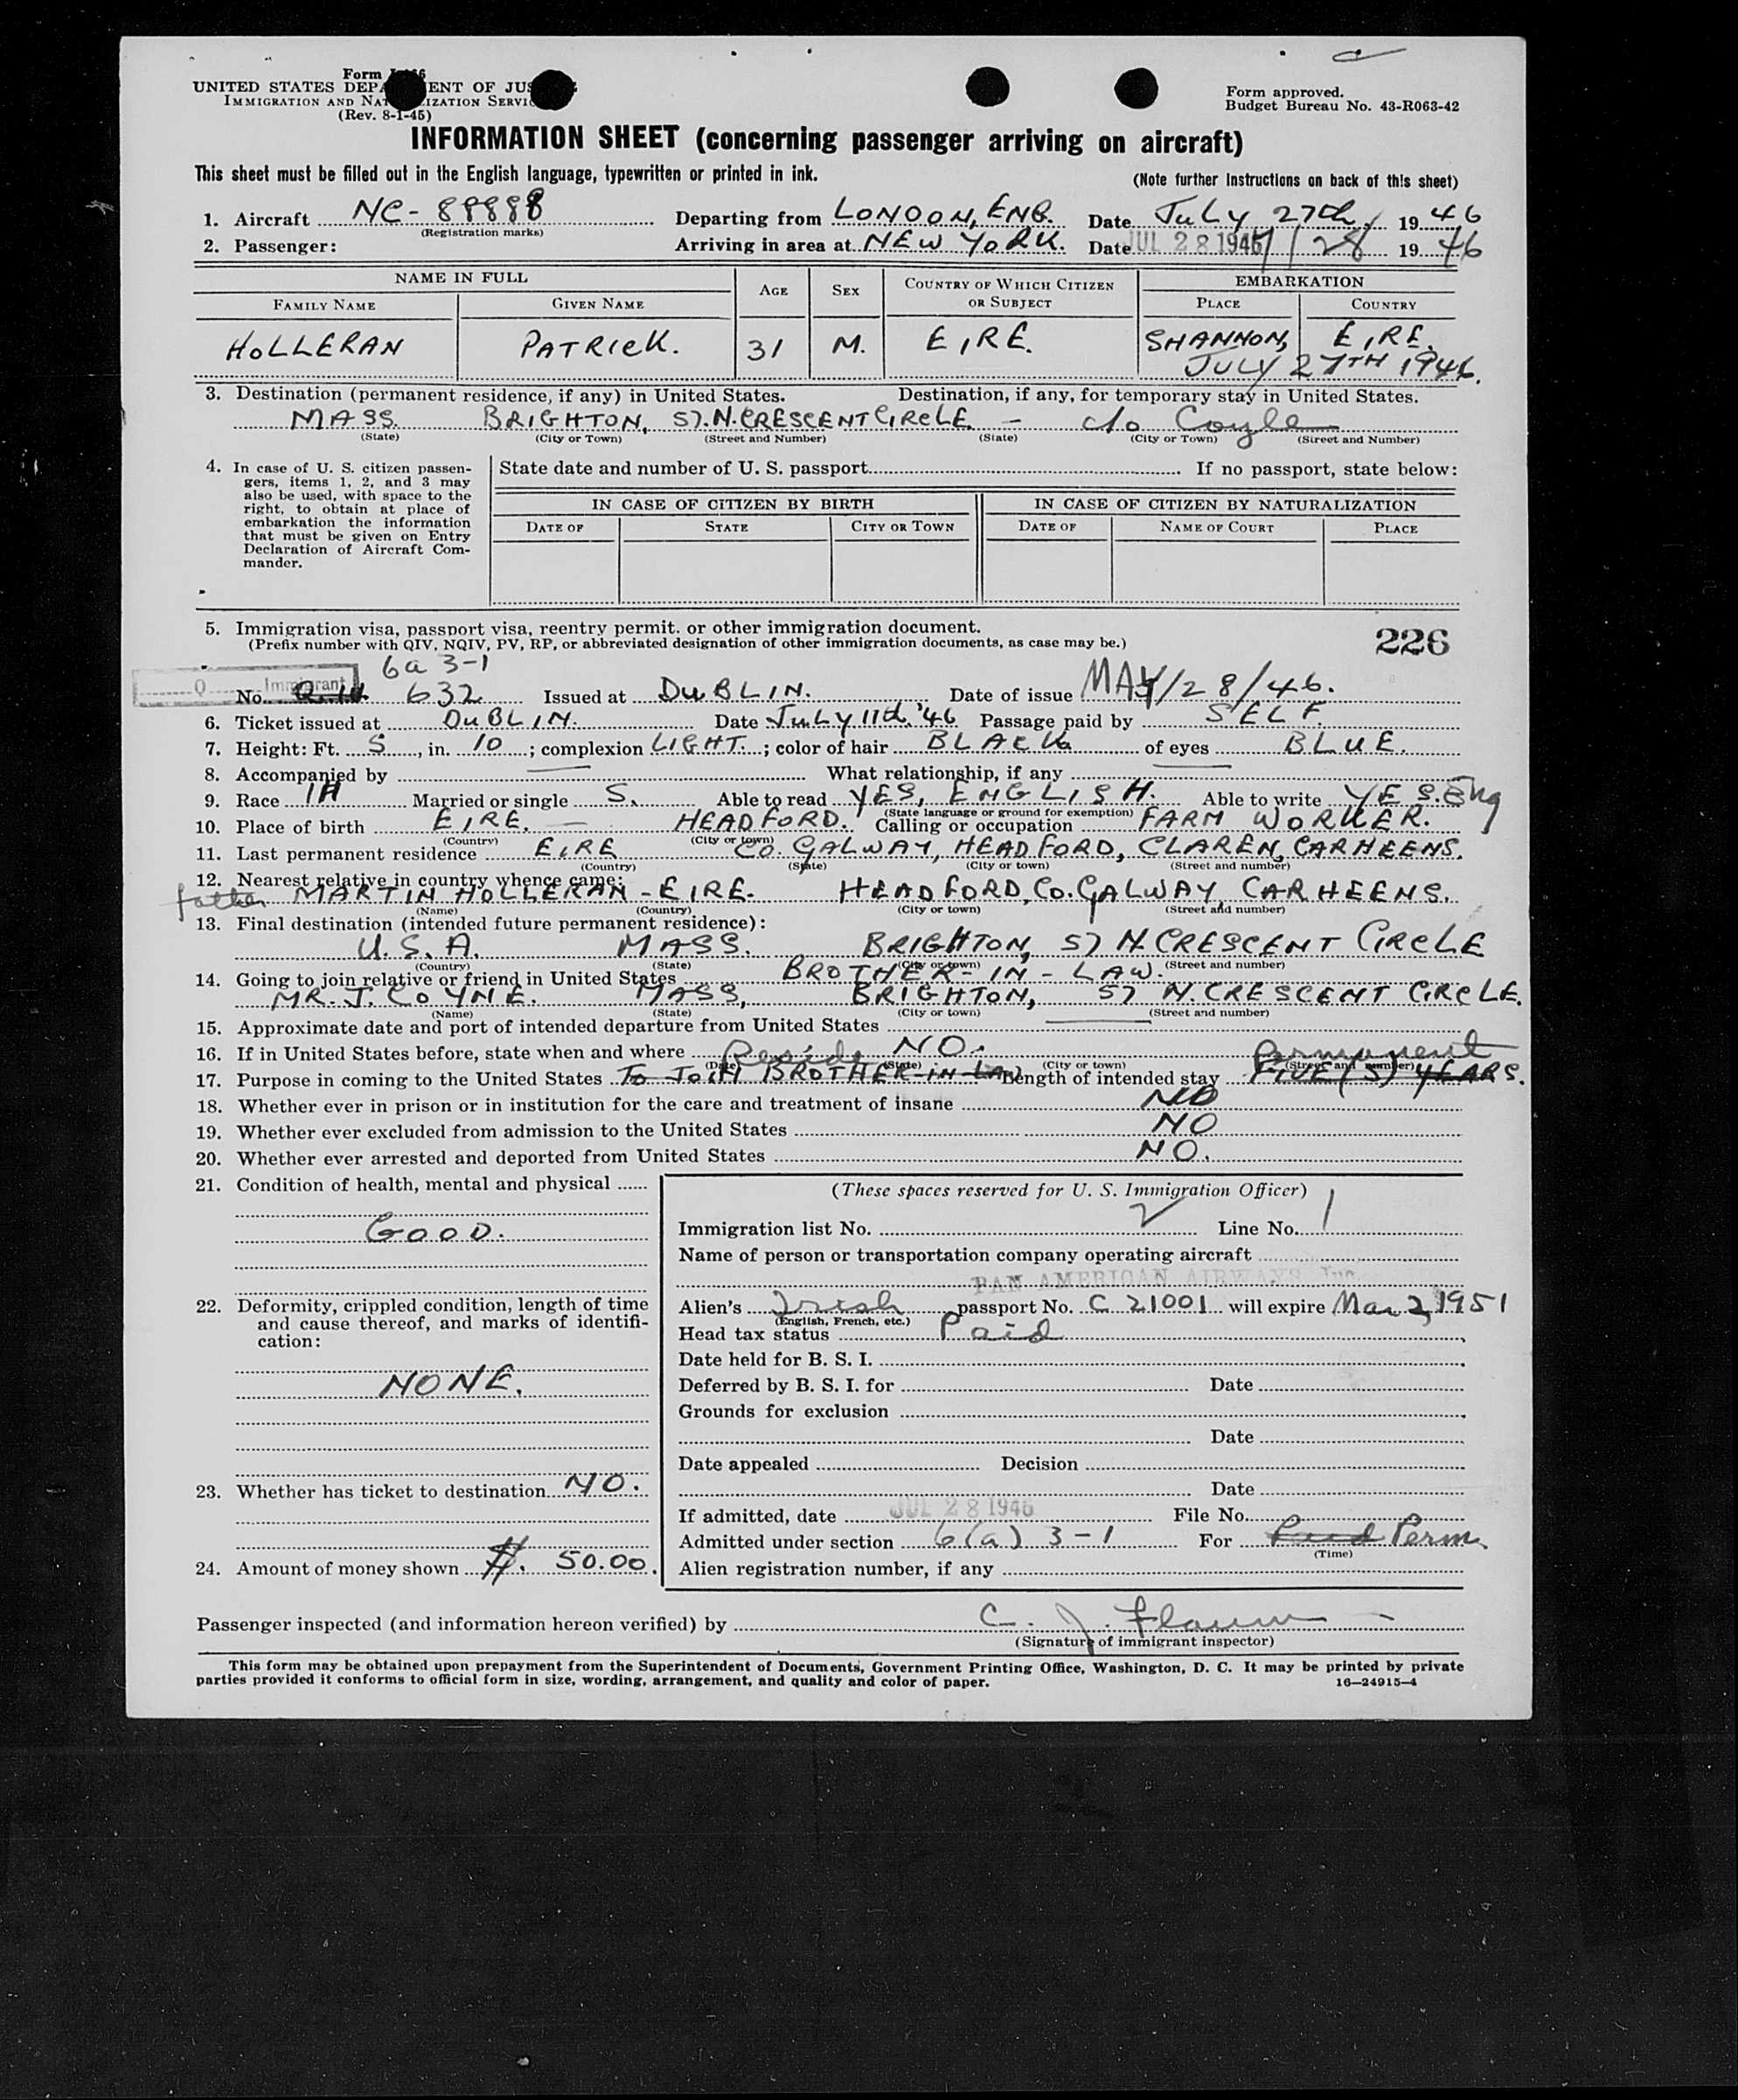 UNITED STATES DEPARTMENT OF JUSTICE
IMMIGRATION AND NATURALIZATION SERVICE
(Rev. 8-1-45)
Form approved.
Budget Bureau No. 43-R063-42
INFORMATION SHEET (concerning passenger arriving on aircraft)
This sheet must be filled out in the English language, typewritten or printed in ink.
(Note further instructions on back of this sheet)
1. Aircraft NC-88888 Departing from LONDON, ENG. Date July 27th, 1946
(Registration marks)
2. Passenger: Arriving in area at NEW YORK. Date JUL 28 1946 7/28 1946
NAME IN FULL AGE SEX COUNTRY OF WHICH CITIZEN OR SUBJECT EMBARKATION
FAMILY NAME GIVEN NAME PLACE COUNTRY
HOLLERAN PATRICK. 31 M. EIRE. SHANNON, EIRE.
JULY 27TH 1946.
3. Destination (permanent residence, if any) in United States. Destination, if any, for temporary stay in United States.
MASS. BRIGHTON, 57. N. CRESCENT CIRCLE. – c/o Coyle
(State) (City or Town) (Street and Number) (State) (City or Town) (Street and Number)
4. In case of U. S. citizen passengers, items 1, 2, and 3 may also be used, with space to the right, to obtain at place of embarkation the information that must be given on Entry Declaration of Aircraft Commander.
State date and number of U. S. passport If no passport, state below:
IN CASE OF CITIZEN BY BIRTH IN CASE OF CITIZEN BY NATURALIZATION
DATE OF STATE CITY OR TOWN DATE OF NAME OF COURT PLACE
5. Immigration visa, passport visa, reentry permit, or other immigration document. 226
(Prefix number with QIV, NQIV, PV, RP, or abbreviated designation of other immigration documents, as case may be.)
6a 3-1
Q Immigrant
No. Q.IV. 632 Issued at DUBLIN. Date of issue MAY/28/46.
6. Ticket issued at DUBLIN. Date July 11th. '46 Passage paid by SELF.
7. Height: Ft. 5, in. 10; complexion LIGHT.; color of hair BLACK of eyes BLUE.
8. Accompanied by — What relationship, if any —
9. Race IH Married or single S. Able to read YES, ENGLISH. Able to write YES. Eng
(State language or ground for exemption)
10. Place of birth EIRE. – HEADFORD. Calling or occupation FARM WORKER.
(Country) (City or town)
11. Last permanent residence EIRE Co. GALWAY, HEADFORD, CLAREN, CARHEENS.
(Country) (State) (City or town) (Street and number)
12. Nearest relative in country whence came:
father MARTIN HOLLERAN - EIRE. HEADFORD, Co. GALWAY, CARHEENS.
(Name) (Country) (City or town) (Street and number)
13. Final destination (intended future permanent residence):
U.S.A. MASS. BRIGHTON, 57 N. CRESCENT CIRCLE
(Country) (State) (City or town) (Street and number)
14. Going to join relative or friend in United States BROTHER-IN-LAW.
MR. J. COYNE. MASS, BRIGHTON, 57 N. CRESCENT CIRCLE.
(Name) (State) (City or town) (Street and number)
15. Approximate date and port of intended departure from United States —
16. If in United States before, state when and where NO.
(Date) (State) (City or town) (Street and number)
Reside Permanent
17. Purpose in coming to the United States TO JOIN BROTHER-IN-LAW Length of intended stay FIVE (5) YEARS.
18. Whether ever in prison or in institution for the care and treatment of insane NO
19. Whether ever excluded from admission to the United States NO
20. Whether ever arrested and deported from United States NO.
21. Condition of health, mental and physical
GOOD.
22. Deformity, crippled condition, length of time and cause thereof, and marks of identification:
NONE.
23. Whether has ticket to destination NO.
24. Amount of money shown $. 50.00.
(These spaces reserved for U. S. Immigration Officer)
Immigration list No. 2 Line No. 1
Name of person or transportation company operating aircraft
PAN AMERICAN AIRWAYS Inc.
Alien's Irish passport No. C 21001 will expire Mar 2, 1951
(English, French, etc.)
Head tax status Paid
Date held for B. S. I.
Deferred by B. S. I. for Date
Grounds for exclusion
Date
Date appealed Decision
Date
If admitted, date JUL 28 1946 File No.
Admitted under section 6(a) 3-1 For Perm.
(Time)
Alien registration number, if any
Passenger inspected (and information hereon verified) by C. J. Flaum
(Signature of immigrant inspector)
This form may be obtained upon prepayment from the Superintendent of Documents, Government Printing Office, Washington, D. C. It may be printed by private
parties provided it conforms to official form in size, wording, arrangement, and quality and color of paper. 16—24915-4